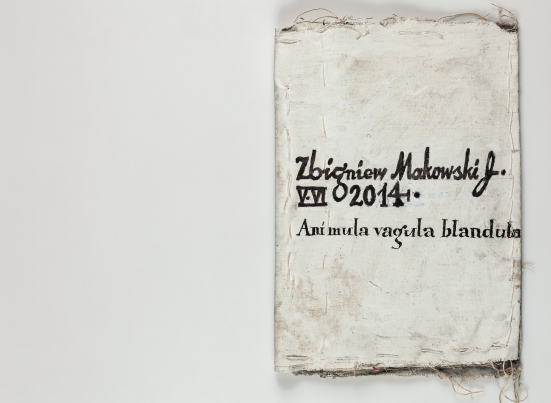 Zbigniew Makowski J.
V-VI 2014.
Animula vagula blandula